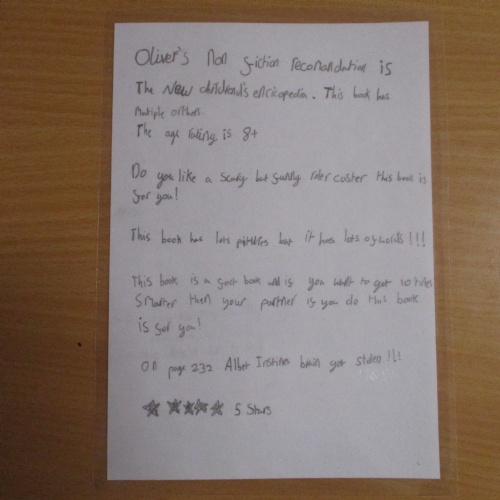 Oliver's non fiction recomandation is
The New childrend's encicopedia. This book has
multiple orthors.
The age rating is 8+
Do you like a scary but funny roler coster this book is
for you!
This book has lots pictures but it has lots of words!!!
This book is a fact book and if you want to get 10 times
Smarter then your partner if you do this book
is for you!
On page 232 Albet Instines brain got stolen!!!
5 Stars